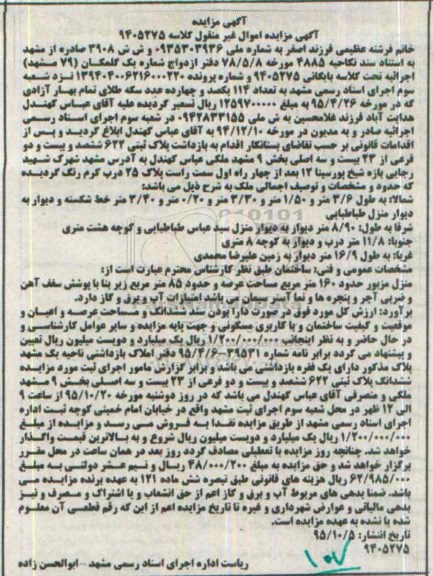 آگهی مزایده
آگهی مزایده اموال غیر منقول کلاسه ۹۴۰۵۲۷۵
خانم فرشته عظیمی فرزند اصغر به شماره ملی ۰۹۳۵۳۰۳۹۳۶ و ش ش ۳۹۰۸ صادره از مشهد
به استناد سند نکاحیه ۴۸۸۵ مورخه ۷۸/۵/۸ دفتر ازدواج شماره یک گلمکان (۷۹ مشهد)
اجرائیه تحت کلاسه بایگانی ۹۴۰۵۲۷۵ و شماره پرونده ۱۳۹۴۰۴۰۰۶۲۱۶۰۰۰۲۲۰ نزد شعبه
سوم اجرای اسناد رسمی مشهد به تعداد ۱۱۴ یکصد و چهارده عدد سکه طلای تمام بهار آزادی
که در مورخه ۹۵/۴/۲۶ به مبلغ ۱۲۵۹۷۰۰۰۰۰ ریال تسعیر گردیده علیه آقای عباس کهندل
هدایت آباد فرزند غلامحسین به ش ملی ۰۹۴۲۸۳۴۱۵۵ در شعبه سوم اجرای اسناد رسمی
اجرائیه صادر و به مدیون در مورخه ۹۴/۱۲/۱۰ به آقای عباس کهندل ابلاغ گردید و پس از
اقدامات قانونی بر حسب تقاضای بستانکار اقدام به بازداشت پلاک ثبتی ۶۲۲ ششصد و بیست و دو
فرعی از ۲۳ بیست و سه اصلی بخش ۹ مشهد ملکی عباس کهندل به آدرس مشهد شهرک شهید
رجایی بازه شیخ پورسینا ۱۲ بعد از چهار راه اول سمت راست پلاک ۲۵ درب کرم رنگ گردیده
که حدود و مشخصات و توصیف اجمالی ملک به شرح ذیل می باشد:
شمالا: به طول ۳/۶ متر و ۱/۵۰ متر و ۳/۳۰ متر و ۰/۲۰ متر و ۳/۳۰ متر خط شکسته و دیوار به
دیوار منزل طباطبایی
شرقا به طول: ۸/۹۰ متر دیوار به دیوار منزل سید عباس طباطبایی و کوچه هشت متری
جنوبا: ۱۱/۸ متر درب و دیوار به کوچه ۸ متری
غربا: به طول ۱۶/۹ متر دیوار به زمین علیرضا محمدی
مشخصات عمومی و فنی: ساختمان طبق نظر کارشناس محترم عبارت است از:
منزل مزبور حدود ۱۶۰ متر مربع مساحت عرصه و حدود ۸۵ متر مربع زیر بنا با پوشش سقف آهن
و ضربی آجر و پنجره ها و نما آستر سیمان می باشد امتیازات آب و برق و گاز دارد.
برآورد: ارزش کل مورد فوق در صورت دارا بودن سند ششدانگ و مساحت عرصه و اعیان و
موقعیت و کیفیت ساختمان و با کاربری مسکونی و جهت پایه مزایده و سایر عوامل کارشناسی و
در حال حاضر و به نظر اینجانب ۱/۲۰۰/۰۰۰/۰۰۰ ریال یک میلیارد و دویست میلیون ریال تعیین
و پیشنهاد می گردد برابر نامه شماره ۳۹۵۳۱-۹۵/۲/۶ دفتر املاک بازداشتی ناحیه یک مشهد
پلاک مذکور دارای یک فقره بازداشتی می باشد و برابر گزارش مامور اجرای ثبت مورد مزایده
ششدانگ پلاک ثبتی ۶۲۲ ششصد و بیست و دو فرعی از ۲۳ بیست و سه اصلی بخش ۹ مشهد
ملکی و متصرفی آقای عباس کهندل می باشد که در روز دوشنبه مورخه ۹۵/۱۰/۲۰ از ساعت ۹
الی ۱۲ ظهر در محل شعبه سوم اجرای ثبت مشهد واقع در خیابان امام خمینی کوچه ثبت اداره
اجرای اسناد رسمی مشهد از طریق مزایده نقدا به فروش می رسد و مزایده از مبلغ
۱/۲۰۰/۰۰۰/۰۰۰ ریال یک میلیارد و دویست میلیون ریال شروع و به بالاترین قیمت واگذار
خواهد شد. چنانچه روز مزایده با تعطیلی مصادف گردد روز بعد در همان ساعت در محل مقرر
برگزار خواهد شد و حق مزایده به مبلغ ۴۸/۰۰۰/۲۰۰ ریال و نیم عشر دولتی به مبلغ
۶۲/۹۸۵/۰۰۰ ریال هزینه های قانونی طبق تبصره شش ماده ۱۲۱ به عهده برنده مزایده می
باشد. ضمنا بدهی های مربوط آب و برق و گاز اعم از حق انشعاب و یا اشتراک و مصرف و نیز
بدهی مالیاتی و عوارض شهرداری و غیره تا تاریخ مزایده اعم از این که رقم قطعی آن معلوم
شده یا نشده به عهده مزایده است.
تاریخ انتشار: ۹۵/۱۰/۵
۹۴۰۵۲۷۵
ریاست اداره اجرای اسناد رسمی مشهد -ابوالحسن زاده